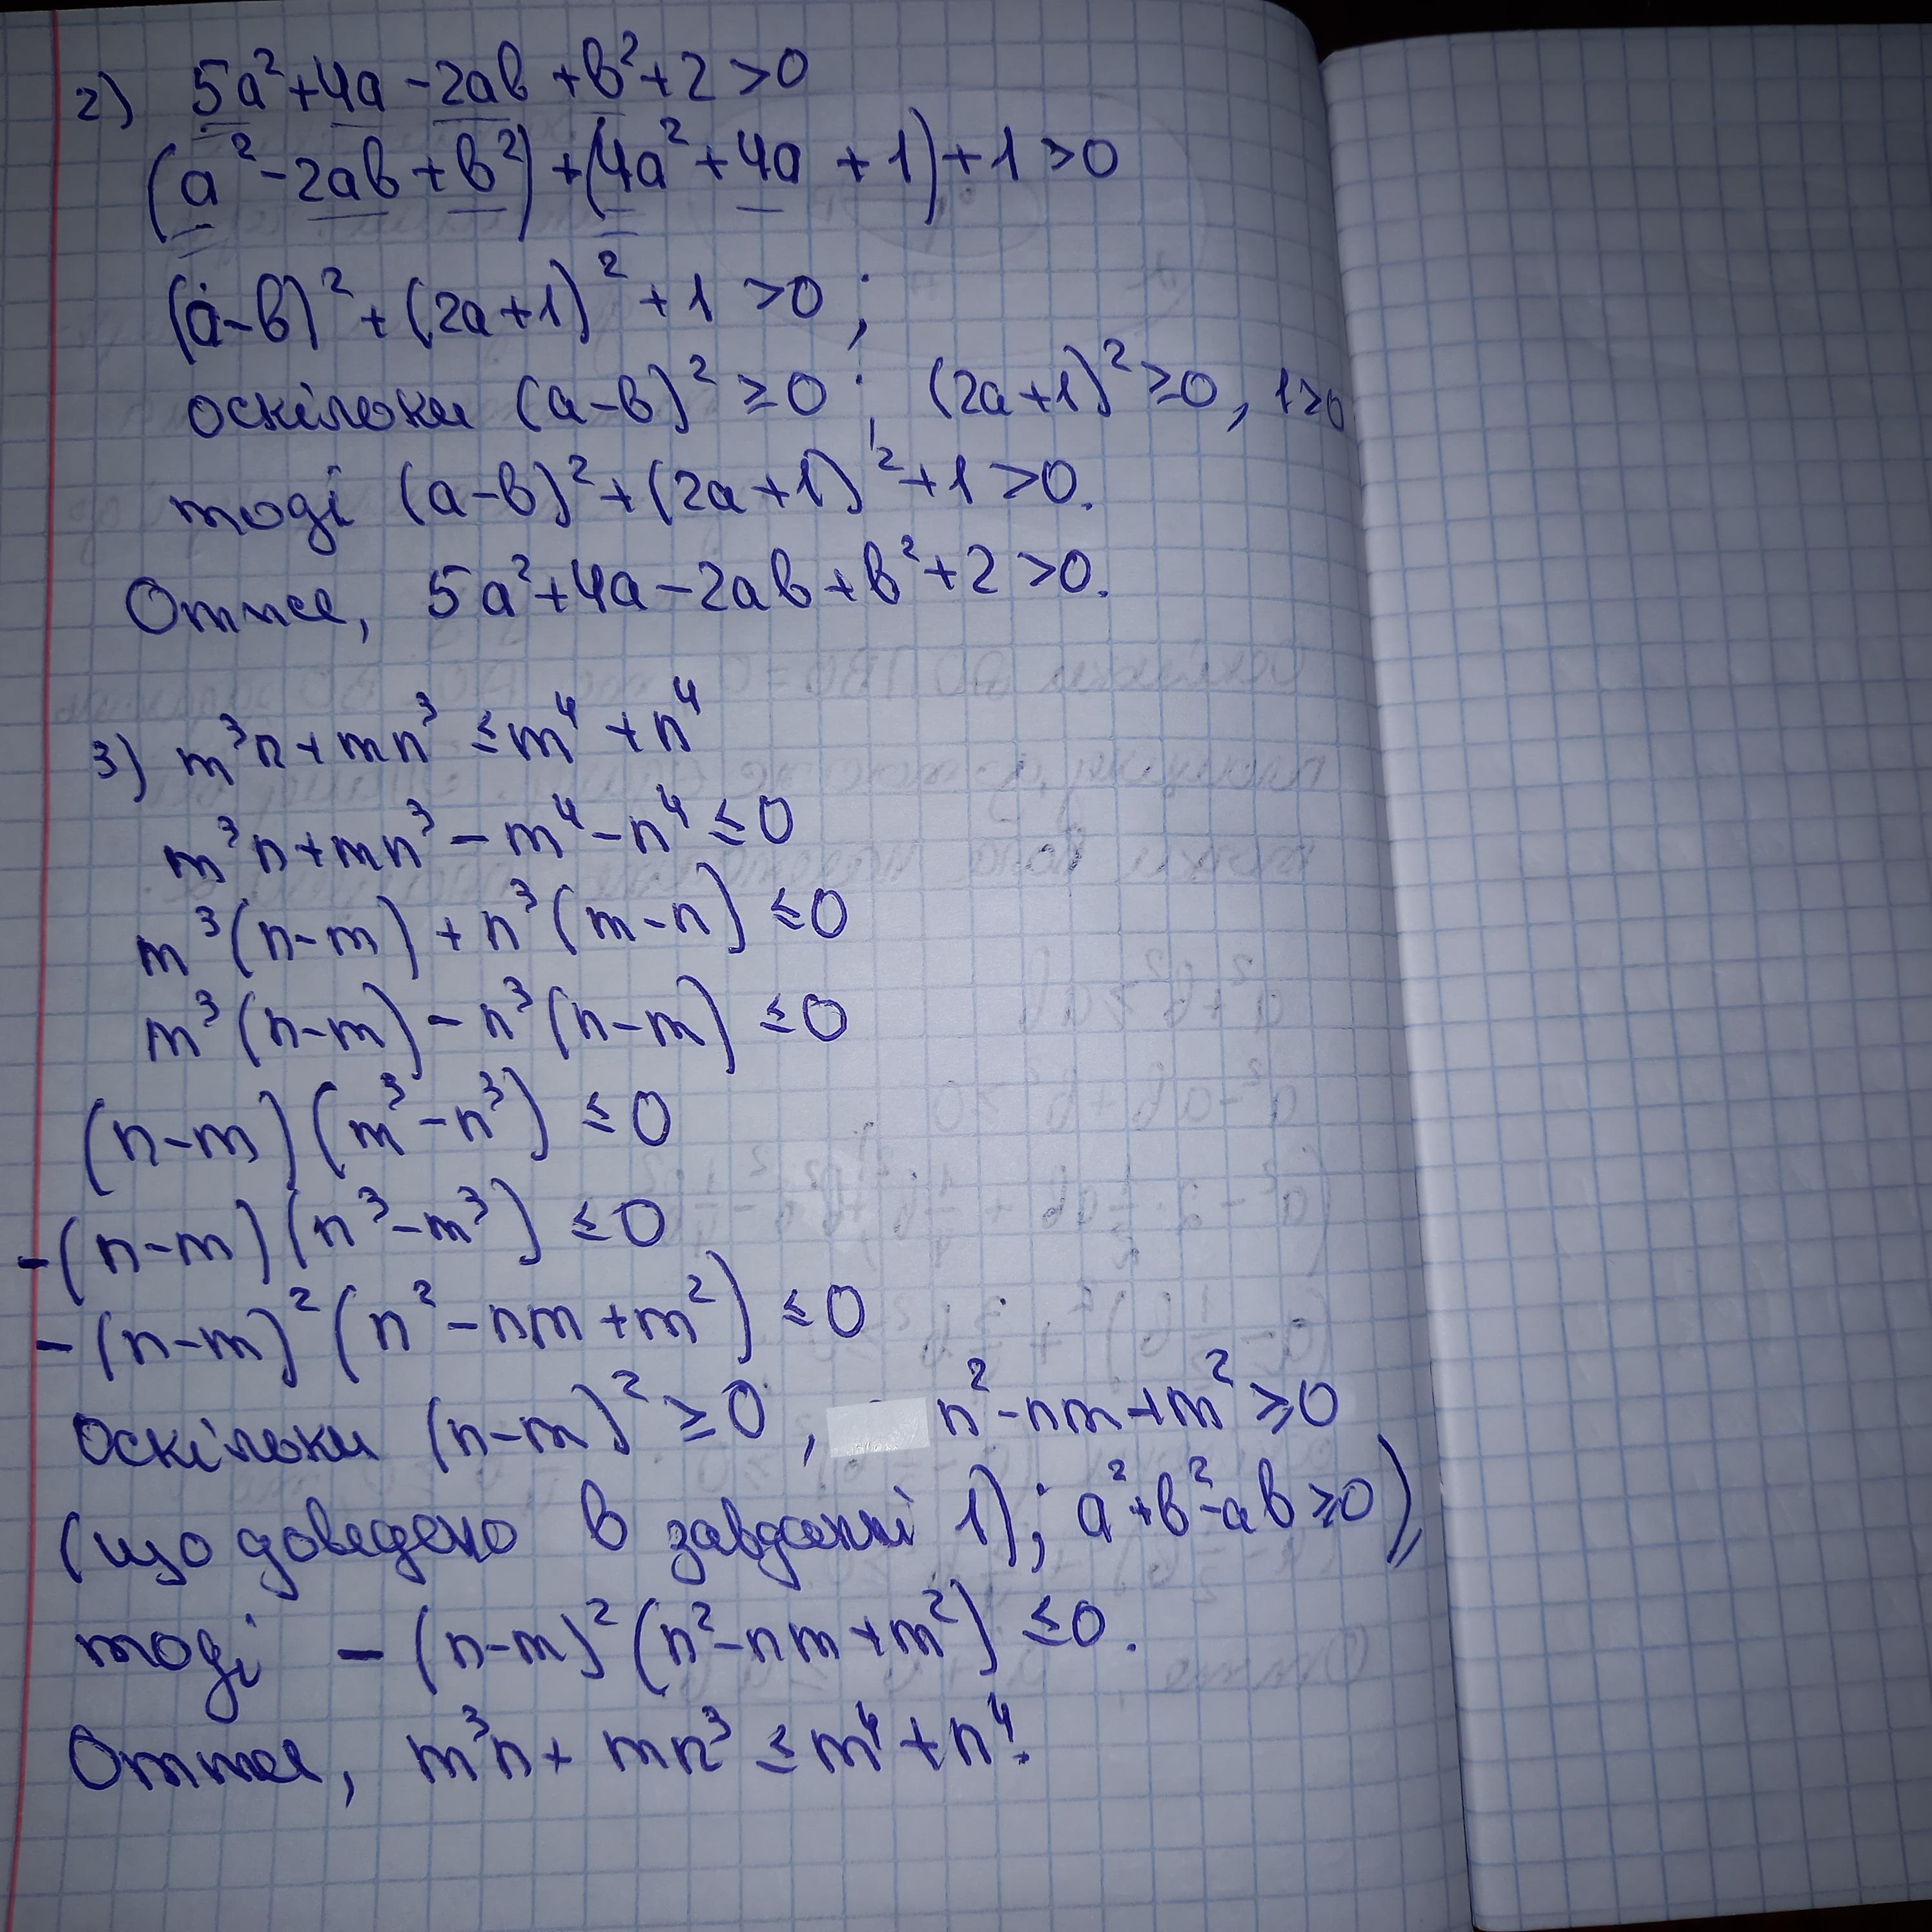 2) 5a²+4a-2ab+b²+2>0
(a²-2ab+b²)+(4a²+4a+1)+1>0
(a-b)²+(2a+1)²+1>0;
оскільки (a-b)²≥0; (2a+1)²≥0, 1>0
тоді (a-b)²+(2a+1)²+1>0.
Отже, 5a²+4a-2ab+b²+2>0.
3) m³n+mn³≤m⁴+n⁴
m³n+mn³-m⁴-n⁴≤0
m³(n-m)+n³(m-n)≤0
m³(n-m)-n³(n-m)≤0
(n-m)(m³-n³)≤0
-(n-m)(n³-m³)≤0
-(n-m)²(n²-nm+m²)≤0
Оскільки (n-m)²≥0, n²-nm+m²≥0
(що доведено в завданні 1); a²+b²-ab≥0),
тоді -(n-m)²(n²-nm+m²)≤0.
Отже, m³n+mn³≤m⁴+n⁴.